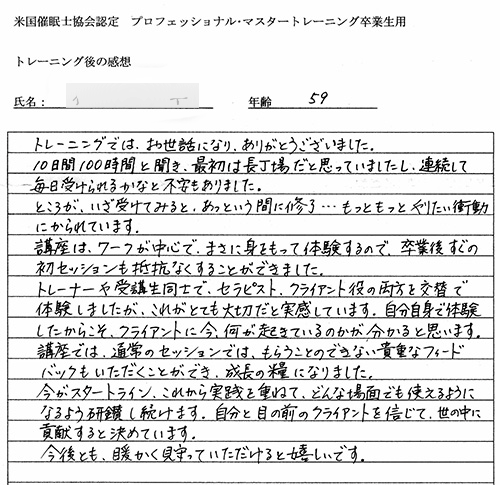 米国催眠士協会認定 プロフェッショナル・マスタートレーニング卒業生用
トレーニング後の感想
氏名：
年齢 59
トレーニングでは、お世話になり、ありがとうございました。
10日間100時間と聞き、最初は長丁場だと思っていましたし、連続して
毎日受けられるかなと不安もありました。
ところが、いざ受けてみると、あっという間に修了…もっともっとやりたい衝動
にかられています。
講座は、ワークが中心で、まさに身をもって体験するので、卒業後すぐの
初セッションも抵抗なくすることができました。
トレーナーや受講生同士で、セラピスト、クライアント役の両方を交替で
体験しましたが、これがとても大切だと実感しています。自分自身で体験
したからこそ、クライアントに今、何が起きているのかが、分かると思います。
講座では、通常のセッションでは、もらうことのできない貴重なフィード
バックもいただくことができ、成長の糧になりました。
今がスタートライン、これから実践を重ねて、どんな場面でも使えるように
なるよう研鑽し続けます。自分と目の前のクライアントを信じて、世の中に
貢献すると決めています。
今後とも、暖かく見守っていただけると嬉しいです。